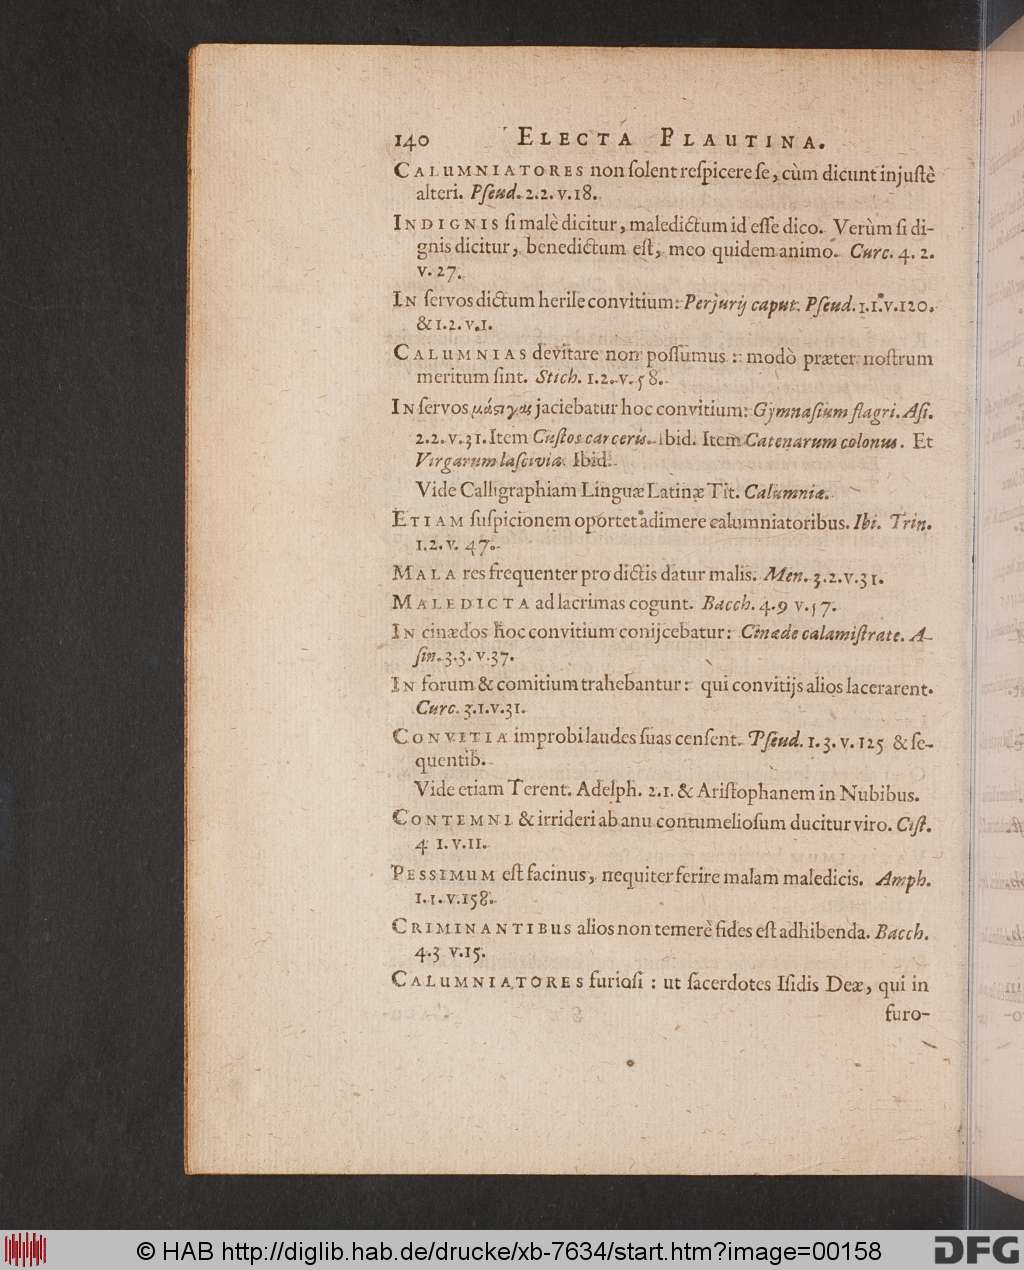 140 ELECTA PLAUTINA.
CALUMNIATORES non ſolent reſpicere ſe, cùm dicunt injuſtè
alteri. Pſeud. 2.2. v.18.
INDIGNIS ſi malè dicitur, maledictum id eſſe dico. Verùm ſi di-
gnis dicitur, benedictum eſt, meo quidem animo. Curc. 4. 2.
v. 27.
IN ſervos dictum herile convitium: Perjurij caput. Pſeud. 1.1. v.120.
& 1.2. v.1.
CALUMNIAS devitare non poſſumus : modò præter noſtrum
meritum ſint. Stich. 1.2. v. 58.
IN ſervos μάστιγας jaciebatur hoc convitium: Gymnaſium flagri. Aſi.
2.2. v.31. Item Cuſtos carceris. ibid. Item Catenarum colonus. Et
Virgarum laſcivia. Ibid.
Vide Calligraphiam Linguæ Latinæ Tit. Calumniæ.
ETIAM ſuſpicionem oportet adimere calumniatoribus. Ibi. Trin.
1.2. v. 47.
MALA res frequenter pro dictis datur malis. Men. 3.2. v.31.
MALEDICTA ad lacrimas cogunt. Bacch. 4.9 v.57.
IN cinædos hoc convitium conijcebatur: Cinæde calamiſtrate. A-
ſin. 3.3. v.37.
IN forum & comitium trahebantur : qui convitijs alios lacerarent.
Curc. 3.1. v.31.
CONVITIA improbi laudes ſuas cenſent. Pſeud. 1. 3. v. 125 & ſe-
quentib.
Vide etiam Terent. Adelph. 2.1. & Ariſtophanem in Nubibus.
CONTEMNI & irrideri ab anu contumelioſum ducitur viro. Ciſt.
4 1. v.11.
PESSIMUM eſt facinus, nequiter ferire malam maledicis. Amph.
1.1. v.158.
CRIMINANTIBUS alios non temerè fides eſt adhibenda. Bacch.
4.3 v.15.
CALUMNIATORES furioſi : ut ſacerdotes Iſidis Deæ, qui in
furo-
© HAB http://diglib.hab.de/drucke/xb-7634/start.htm?image=00158
DFG